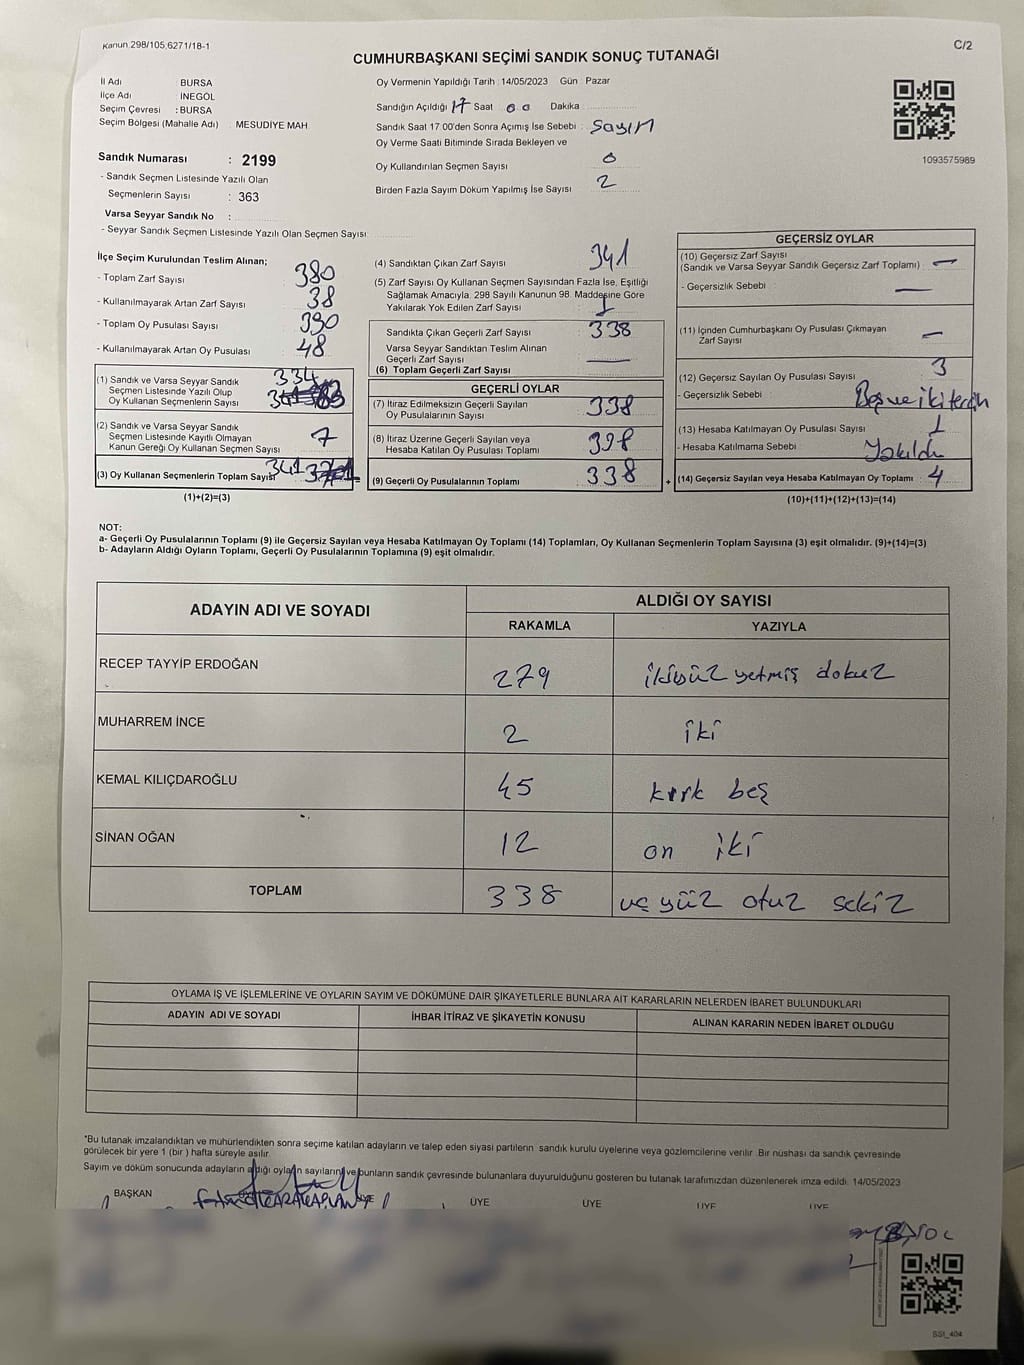 Kanun 298/105,6271/18-1
C/2
CUMHURBAŞKANI SEÇİMİ SANDIK SONUÇ TUTANAĞI
İl Adı : BURSA
İlçe Adı : İNEGÖL
Seçim Çevresi : BURSA
Seçim Bölgesi (Mahalle Adı) : MESUDİYE MAH
Sandık Numarası : 2199
- Sandık Seçmen Listesinde Yazılı Olan
Seçmenlerin Sayısı : 363
Varsa Seyyar Sandık No :
- Seyyar Sandık Seçmen Listesinde Yazılı Olan Seçmen Sayısı:
Oy Vermenin Yapıldığı Tarih : 14/05/2023 Gün : Pazar
Sandığın Açıldığı 17 Saat 00 Dakika
Sandık Saat 17:00'den Sonra Açımış İse Sebebi : Sayım
Oy Verme Saati Bitiminde Sırada Bekleyen ve
Oy Kullandırılan Seçmen Sayısı 0
Birden Fazla Sayım Döküm Yapılmış İse Sayısı 2
1093575989
İlçe Seçim Kurulundan Teslim Alınan;
- Toplam Zarf Sayısı 380
- Kullanılmayarak Artan Zarf Sayısı 38
- Toplam Oy Pusulası Sayısı 390
- Kullanılmayarak Artan Oy Pusulası 48
(1) Sandık ve Varsa Seyyar Sandık 334
Seçmen Listesinde Yazılı Olup
Oy Kullanan Seçmenlerin Sayısı
(2) Sandık ve Varsa Seyyar Sandık
Seçmen Listesinde Kayıtlı Olmayan 7
Kanun Gereği Oy Kullanan Seçmen Sayısı
(3) Oy Kullanan Seçmenlerin Toplam Sayısı 341
(1)+(2)=(3)
(4) Sandıktan Çıkan Zarf Sayısı 341
(5) Zarf Sayısı Oy Kullanan Seçmen Sayısından Fazla İse, Eşitliği
Sağlamak Amacıyla, 298 Sayılı Kanunun 98. Maddesine Göre
Yakılarak Yok Edilen Zarf Sayısı 1
Sandıkta Çıkan Geçerli Zarf Sayısı 338
Varsa Seyyar Sandıktan Teslim Alınan
Geçerli Zarf Sayısı —
(6) Toplam Geçerli Zarf Sayısı
GEÇERLİ OYLAR
(7) İtiraz Edilmeksizin Geçerli Sayılan
Oy Pusulalarının Sayısı 338
(8) İtiraz Üzerine Geçerli Sayılan veya
Hesaba Katılan Oy Pusulası Toplamı
(9) Geçerli Oy Pusulalarının Toplamı 338 +
GEÇERSİZ OYLAR
(10) Geçersiz Zarf Sayısı
(Sandık ve Varsa Seyyar Sandık Geçersiz Zarf Toplamı) —
- Geçersizlik Sebebi : —
(11) İçinden Cumhurbaşkanı Oy Pusulası Çıkmayan
Zarf Sayısı —
(12) Geçersiz Sayılan Oy Pusulası Sayısı 3
- Geçersizlik Sebebi : Boş ve iki tercih
(13) Hesaba Katılmayan Oy Pusulası Sayısı 1
- Hesaba Katılmama Sebebi : Yakıldı
(14) Geçersiz Sayılan veya Hesaba Katılmayan Oy Toplamı : 4
(10)+(11)+(12)+(13)=(14)
NOT:
a- Geçerli Oy Pusulalarının Toplamı (9) ile Geçersiz Sayılan veya Hesaba Katılmayan Oy Toplamı (14) Toplamları, Oy Kullanan Seçmenlerin Toplam Sayısına (3) eşit olmalıdır. (9)+(14)=(3)
b- Adayların Aldığı Oyların Toplamı, Geçerli Oy Pusulalarının Toplamına (9) eşit olmalıdır.
ADAYIN ADI VE SOYADI
ALDIĞI OY SAYISI
RAKAMLA YAZIYLA
RECEP TAYYİP ERDOĞAN 279 ikiyüz yetmiş dokuz
MUHARREM İNCE 2 iki
KEMAL KILIÇDAROĞLU 45 kırk beş
SİNAN OĞAN 12 on iki
TOPLAM 338 üç yüz otuz sekiz
OYLAMA İŞ VE İŞLEMLERİNE VE OYLARIN SAYIM VE DÖKÜMÜNE DAİR ŞİKAYETLERLE BUNLARA AİT KARARLARIN NELERDEN İBARET BULUNDUKLARI
ADAYIN ADI VE SOYADI İHBAR İTİRAZ VE ŞİKAYETİN KONUSU ALINAN KARARIN NEDEN İBARET OLDUĞU
*Bu tutanak imzalandıktan ve mühürlendikten sonra seçime katılan adayların ve talep eden siyasi partilerin sandık kurulu üyelerine veya gözlemcilerine verilir. Bir nüshası da sandık çevresinde
görülecek bir yere 1 (bir) hafta süreyle asılır.
Sayım ve döküm sonucunda adayların aldığı oyların sayılarını ve bunların sandık çevresinde bulunanlara duyurulduğunu gösteren bu tutanak tarafımızdan düzenlenerek imza edildi. 14/05/2023
BAŞKAN ÜYE ÜYE ÜYE ÜYE
SSI_404